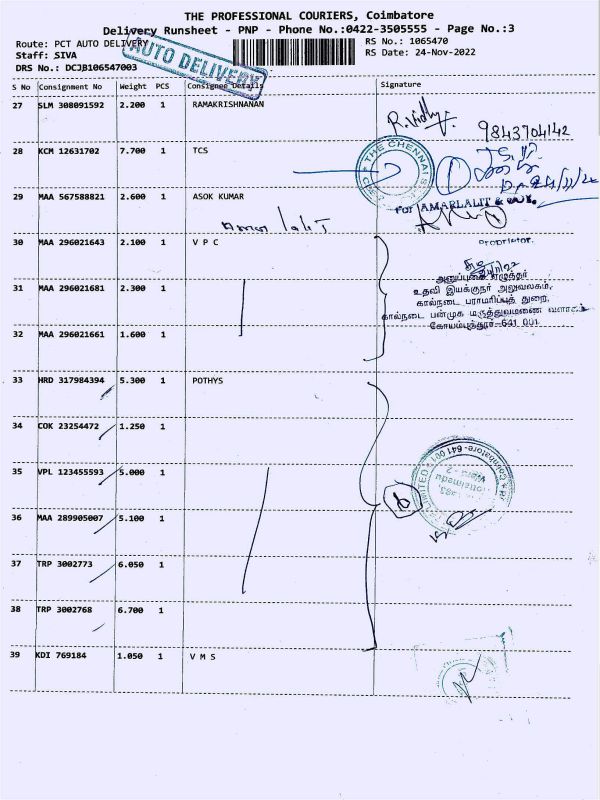 THE PROFESSIONAL COURIERS, Coimbatore
Delivery Runsheet - PNP - Phone No.:0422-3505555 - Page No.:3
Route: PCT AUTO DELIVERY
RS No.: 1065470
Staff: SIVA
RS Date: 24-Nov-2022
DRS No.: DCJB106547003
AUTO DELIVERY
S No Consignment No Weight PCS Consignee Details Signature
27 SLM 308091592 2.200 1 RAMAKRISHNANAN
R.Vidhy
9843704142
28 KCM 12631702 7.700 1 TCS
THE CHENNAI S
29 MAA 567588821 2.600 1 ASOK KUMAR
For AMARLALIT &
Amar lalit
Proprietor.
30 MAA 296021643 2.100 1 V P C
அனுப்புகை எழுத்தர்
உதவி இயக்குநர் அலுவலகம்,
கால்நடை பராமரிப்புத் துறை,
கால்நடை பன்முக மருத்துவமனை வளாகம்
கோயம்புத்தூர்-641 001
31 MAA 296021681 2.300 1
32 MAA 296021661 1.600 1
33 HRD 317984394 5.300 1 POTHYS
34 COK 23254472 1.250 1
35 VPL 123455593 5.000 1
LIMITED * Coimbatore-641 001 *
36 MAA 289905007 5.100 1
37 TRP 3002773 6.050 1
38 TRP 3002768 6.700 1
39 KDI 769184 1.050 1 V M S